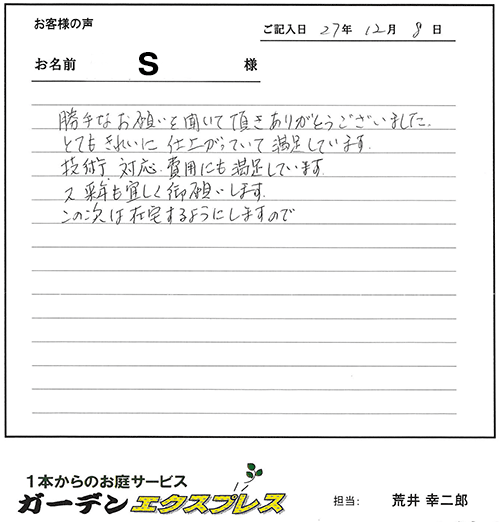 お客様の声
ご記入日 27年 12月 8日
お名前 S 様
勝手なお願いを聞いて頂きありがとうございました.
とてもきれいに 仕上がっていて満足しています.
技術 対応.費用にも満足しています.
又 来年も宜しく御願いします.
この次は在宅するようにしますので
1本からのお庭サービス
ガーデンエクスプレス
担当: 荒井 幸二郎